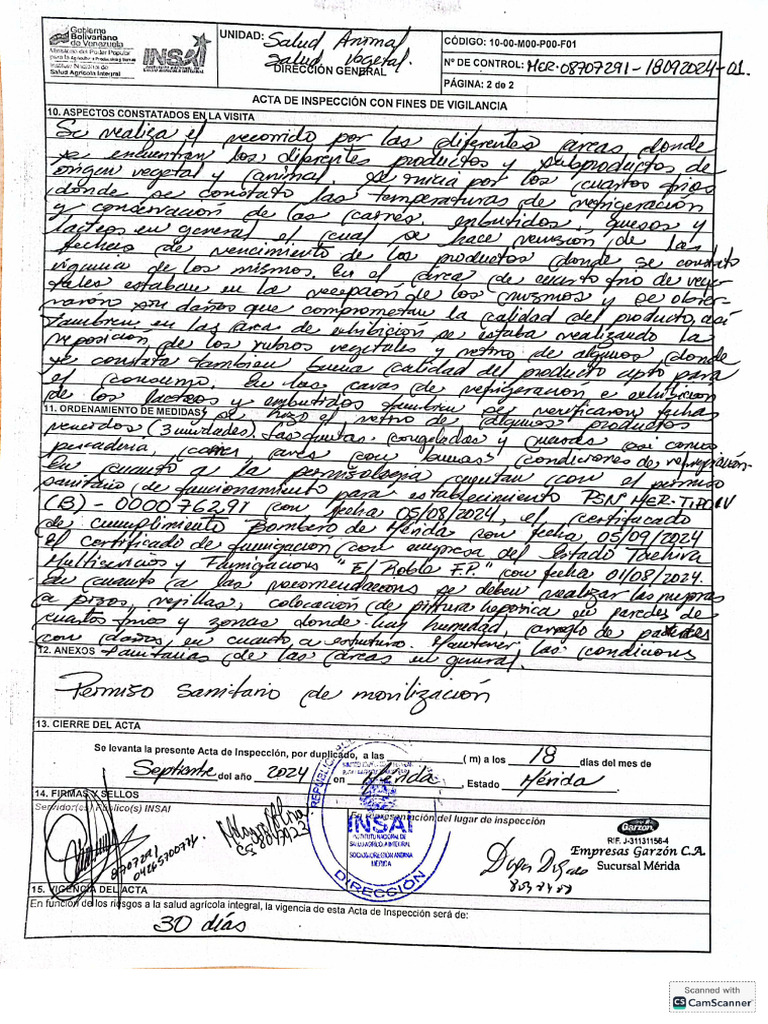 Gobierno Bolivariano de Venezuela
Ministerio del Poder Popular
Instituto Nacional de Salud Agrícola Integral
INSAI
UNIDAD: Salud Animal
Salud Vegetal.
DIRECCIÓN GENERAL
CÓDIGO: 10-00-M00-P00-F01
Nº DE CONTROL: MER-08707291-18092024-01.
PÁGINA: 2 de 2
ACTA DE INSPECCIÓN CON FINES DE VIGILANCIA
10. ASPECTOS CONSTATADOS EN LA VISITA
Se realiza el recorrido por las diferentes areas donde
se encuentran los diferentes productos y subproductos de
origen vegetal y animal, se inicia por los cuartos frios
donde se constato las temperaturas de refrigeración
y conservación de las carnes, embutidos, quesos y
lacteos en general el cual se hace revisión de las
fechas de vencimiento de los productos donde se constato
vigencia de los mismos. En el área de cuarto frio de vege-
tales estaban en la recepción de los mismos y se obser-
varón sin daños que comprometan la calidad del producto, así
tambien en las área de exhibición se estaba realizando la
reposición de los rubros vegetales y retiro de algunos, donde
se constata tambien buena calidad del producto apto para
el consumo. En las cavas de refrigeración e exhibicion
de los lacteos y embutidos tambien se verificaron fechas
11. ORDENAMIENTO DE MEDIDAS se hizo el retiro de algunos productos
vencidos (3 unidades). Las frutas congeladas y quesos así como
pescadería, carnes, aves con buenas condiciones de refrigeración.
En cuanto a la permisologia cuentan con el permiso
sanitario de funcionamiento para establecimiento PSNº MER-TIPO IV
(B) - 000076291 con fecha 05/08/2024, el certificado
de cumplimiento Bombero de Mérida con fecha 05/09/2024
El certificado de fumigación con empresa del Estado Tachira
Multiservicios y Fumigaciones "El Roble F.P." con fecha 01/08/2024.
En cuanto a las recomendaciones se deben realizar las mejoras
a pisos, rejillas, colocación de pintura heporica en paredes de
cuartos frios y zonas donde hay humedad, arreglo de paredes
con daños, en cuanto a estructura. Mantener las condiciones
12. ANEXOS sanitarias de las áreas en general.
Permiso Sanitario de movilización
13. CIERRE DEL ACTA
Se levanta la presente Acta de Inspección, por duplicado, a las ( m) a los 18 días del mes de
Septiembre del año 2024 en Mérida, Estado Mérida.
14. FIRMAS Y SELLOS
Servidor(es) Público(s) INSAI
En representación del lugar de inspección
8707291
04265700774.
REPÚBLICA
INSAI
INSTITUTO NACIONAL DE
SALUD AGRÍCOLA INTEGRAL
SOCIALISTA REGION ANDINA
MÉRIDA
DIRECCIÓN
Garzon
RIF. J-31131156-4
Empresas Garzón C.A.
Sucursal Mérida
15. VIGENCIA DEL ACTA
En función de los riesgos a la salud agrícola integral, la vigencia de esta Acta de Inspección será de:
30 días
Scanned with
CS CamScanner